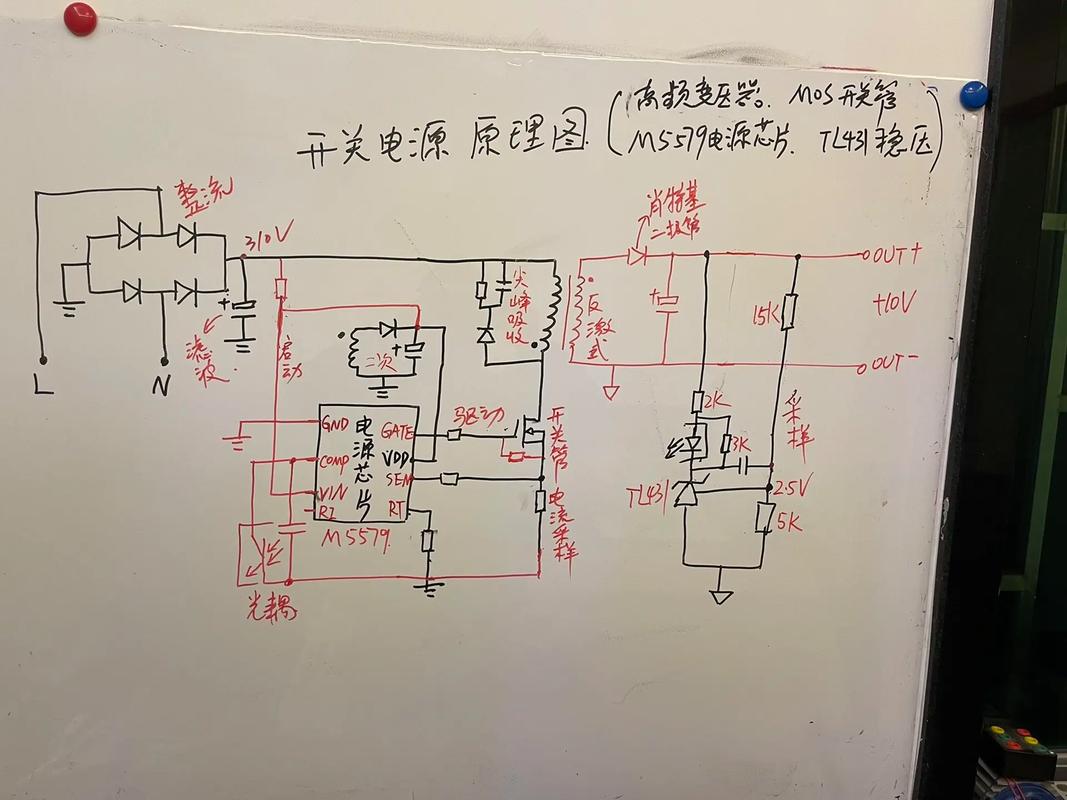 开关电源 原理图
(高频变压器、MOS开关管
M5579电源芯片、TL431稳压)
整流
310V
滤波
L
N
启动
二次
尖峰吸收
反激式
肖特基
二极管
OUT+
+10V
OUT-
15K
采样
2K
3K
TL431
2.5V
5K
驱动
开关管
电流采样
电源芯片
GND
COMP
VIN
RI
GATE
VDD
SEN
RT
M5579
光耦